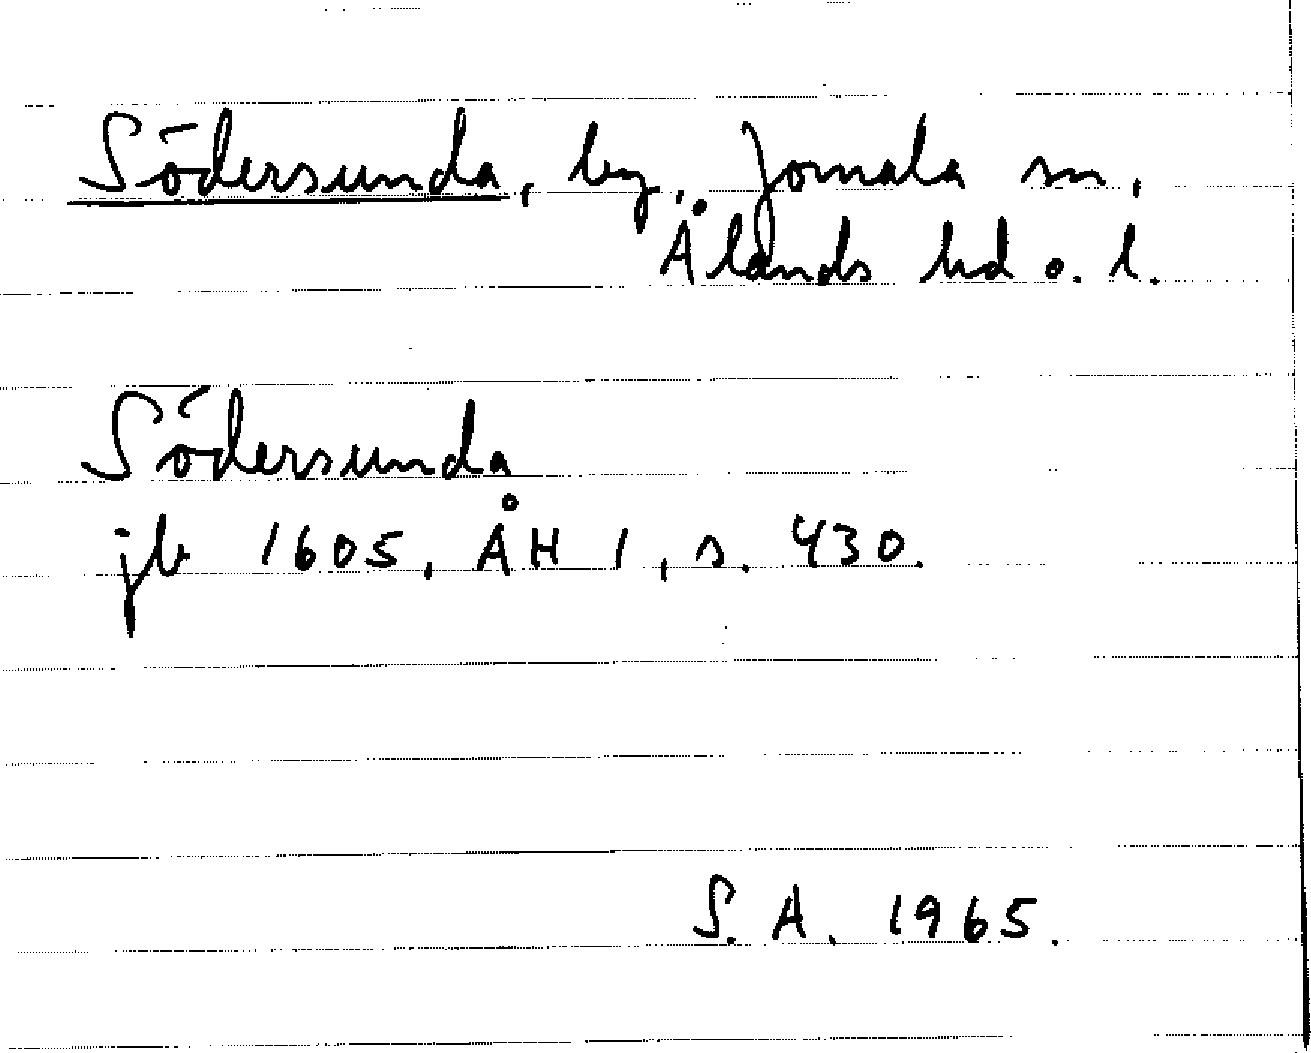 Södersunda, by, Jomala sn,
Ålands hd o. l.
Södersunda
jb 1605, ÅH 1, s. 430.
S. A. 1965.